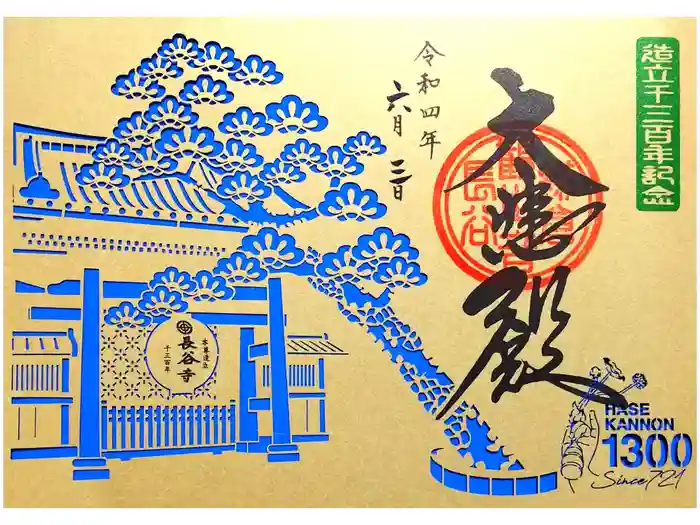 造立千三百年記念
大悲殿
令和四年
六月三日
長谷
本尊造立
長谷寺
千三百年
HASE
KANNON
1300
Since 721